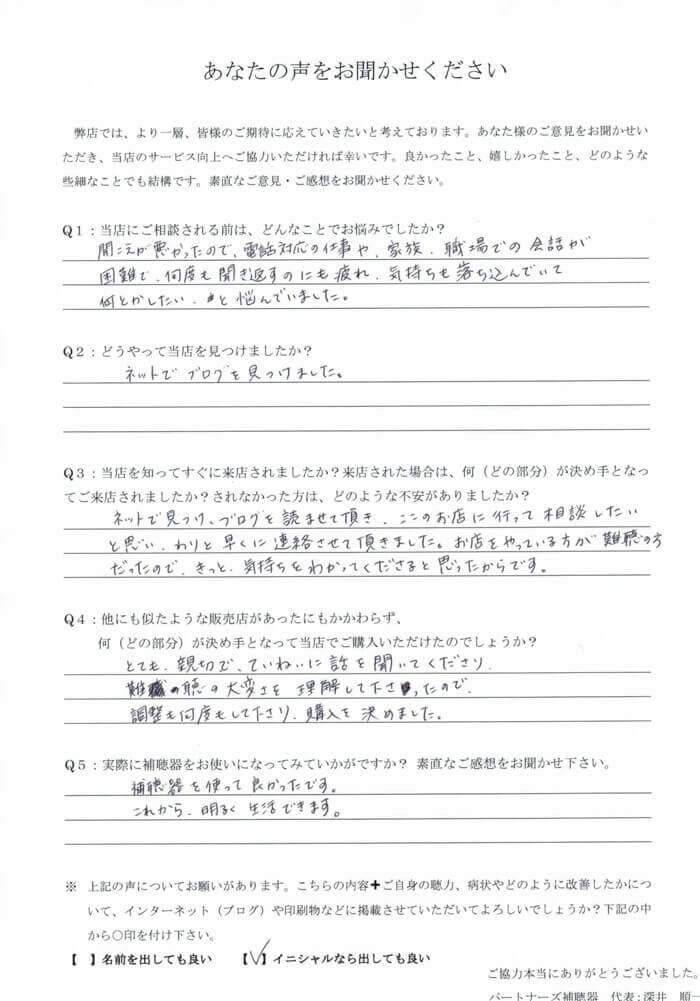 あなたの声をお聞かせください
弊店では、より一層、皆様のご期待に応えていきたいと考えております。あなた様のご意見をお聞かせい
ただき、当店のサービス向上へご協力いただければ幸いです。良かったこと、嬉しかったこと、どのような
些細なことでも結構です。素直なご意見・ご感想をお聞かせください。
Q1：当店にご相談される前は、どんなことでお悩みでしたか？
聞こえが悪かったので、電話対応の仕事や、家族、職場での会話が
困難で、何度も聞き返すのにも疲れ、気持ちも落ち込んでいて
何とかしたい、と悩んでいました。
Q2：どうやって当店を見つけましたか？
ネットでブログを見つけました。
Q3：当店を知ってすぐに来店されましたか？来店された場合は、何（どの部分）が決め手となっ
てご来店されましたか？されなかった方は、どのような不安がありましたか？
ネットで見つけ、ブログを読ませて頂き、ここのお店に行って相談したい
と思い、わりと早くに連絡させて頂きました。お店をやっている方が難聴の方
だったので、きっと、気持ちをわかってくださると思ったからです。
Q4：他にも似たような販売店があったにもかかわらず、
何（どの部分）が決め手となって当店でご購入いただけたのでしょうか？
とても、親切で、ていねいに話を聞いてくださり、
難聴の大変さを理解して下さったので、
調整も何度もして下さり、購入を決めました。
Q5：実際に補聴器をお使いになってみていかがですか？ 素直なご感想をお聞かせ下さい。
補聴器を使って良かったです。
これから、明るく生活できます。
※ 上記の声についてお願いがあります。こちらの内容＋ご自身の聴力、病状やどのように改善したかにつ
いて、インターネット（ブログ）や印刷物などに掲載させていただいてよろしいでしょうか？下記の中
から〇印を付け下さい。
【 】名前を出しても良い 【✓】イニシャルなら出しても良い
ご協力本当にありがとうございました。
パートナーズ補聴器 代表：深井 順一